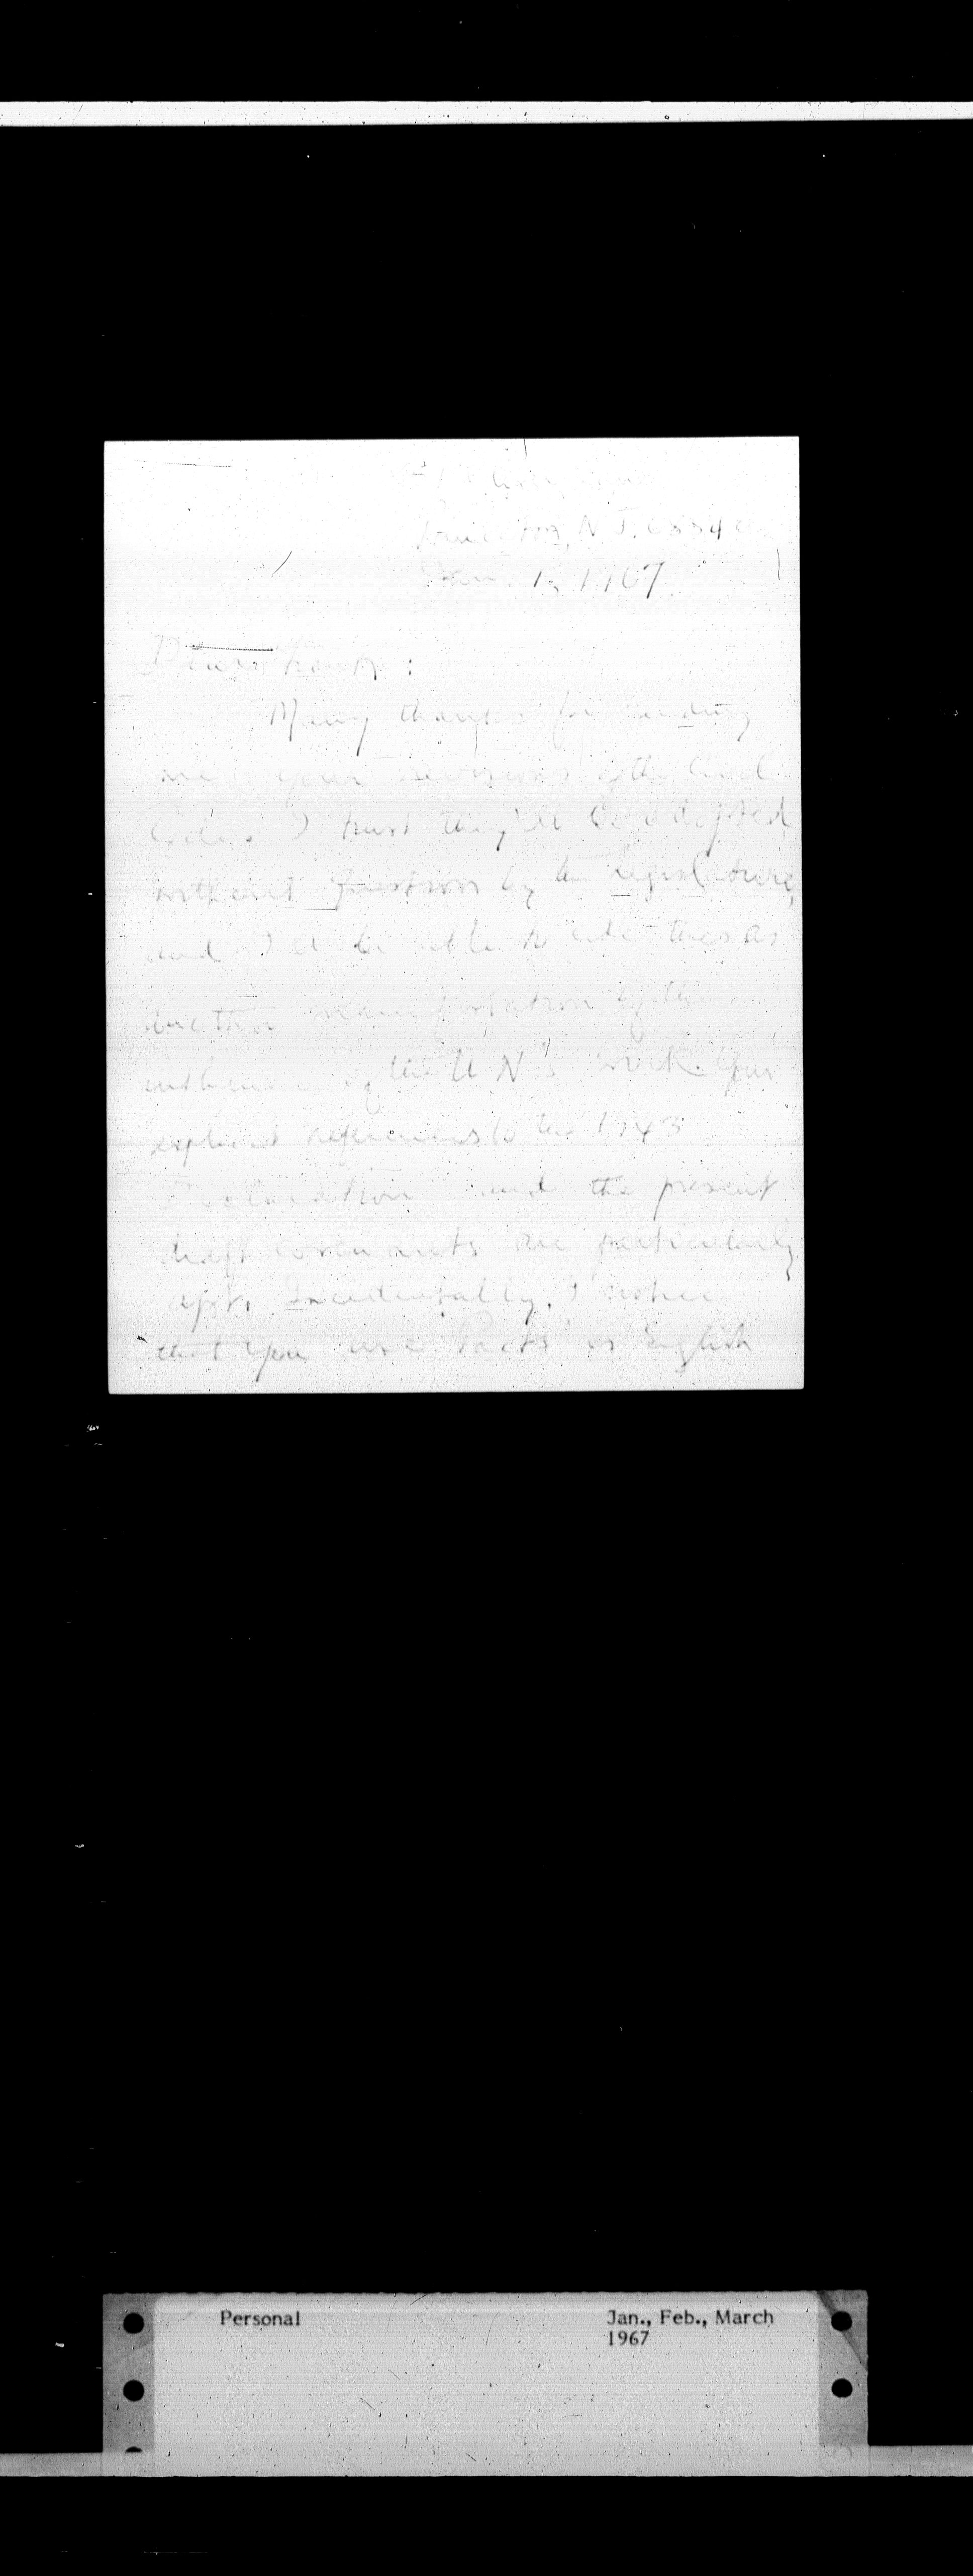 N.J. 08540
Jan. 1, 1967
Dear Frank:
Many thanks for sending
me your revisions of the Civil
Code. I trust they'll be adopted
without question by the legislature,
and I'll be able to cite this as
another manifestation of the
influence of the UN's work. Your
explicit references to the 1948
Declaration and the present
draft covenants are particularly
apt. Incidentally, I notice
that you use Pacts as English
Personal
Jan., Feb., March
1967